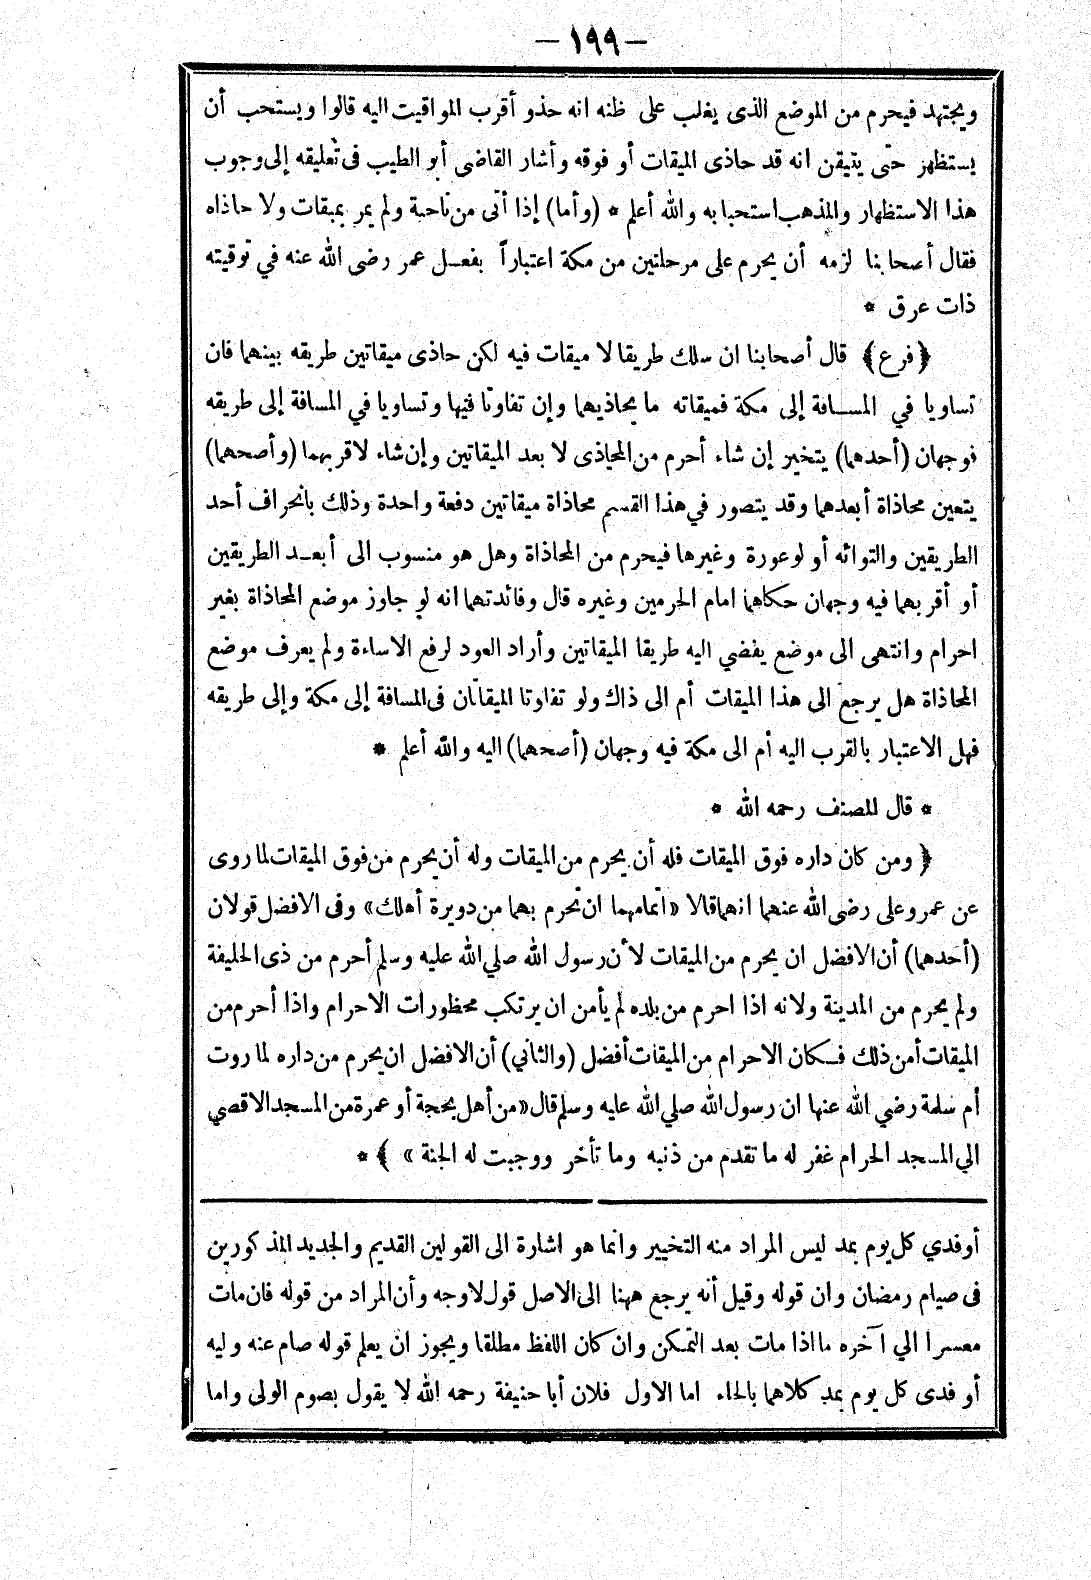 — ١٩٩ —
ويجتهد فيحرم من الموضع الذى يغلب على ظنه انه حذو أقرب المواقيت اليه قالوا ويستحب أن
يستظهر حتى يتيقن انه قد حاذى الميقات أو فوقه وأشار القاضى أبو الطيب فى تعليقه إلى وجوب
هذا الاستظهار والمذهب استحبابه والله أعلم * (وأما) إذا أتى من ناحية ولم يمر بميقات ولا حاذاه
فقال أصحابنا لزمه أن يحرم على مرحلتين من مكة اعتباراً بفعل عمر رضى الله عنه في توقيته
ذات عرق *
﴿فرع﴾ قال أصحابنا ان سلك طريقا لا ميقات فيه لكن حاذى ميقاتين طريقه بينهما فان
تساويا في المسافة إلى مكة فميقاته ما يحاذيهما وإن تفاوتا فيها وتساويا في المسافة إلى طريقه
فوجهان (أحدهما) يتخير إن شاء أحرم من المحاذى لا بعد الميقاتين وإن شاء لاقربهما (وأصحهما)
يتعين محاذاة أبعدهما وقد يتصور في هذا القسم محاذاة ميقاتين دفعة واحدة وذلك بانحراف أحد
الطريقين والتوائه أو لوعورة وغيرها فيحرم من المحاذاة وهل هو منسوب الى أبعد الطريقين
أو أقربهما فيه وجهان حكاهما امام الحرمين وغيره قال وفائدتهما انه لو جاوز موضع المحاذاة بغير
احرام وانتهى الى موضع يفضي اليه طريقا الميقاتين وأراد العود لرفع الاساءة ولم يعرف موضع
المحاذاة هل يرجع الى هذا الميقات أم الى ذاك ولو تفاوتا الميقاتان فى المسافة إلى مكة وإلى طريقه
فهل الاعتبار بالقرب اليه أم الى مكة فيه وجهان (أصحهما) اليه والله أعلم *
* قال المصنف رحمه الله *
﴿ومن كان داره فوق الميقات فله أن يحرم من الميقات وله أن يحرم من فوق الميقات لما روى
عن عمر وعلى رضى الله عنهما انهما قالا «اتمامهما ان تحرم بهما من دويرة أهلك» وفى الافضل قولان
(أحدهما) أن الافضل ان يحرم من الميقات لأن رسول الله صلي الله عليه وسلم أحرم من ذى الحليفة
ولم يحرم من المدينة ولانه اذا احرم من بلده لم يأمن ان يرتكب محظورات الاحرام واذا أحرم من
الميقات أمن ذلك فكان الاحرام من الميقات أفضل (والثاني) أن الافضل ان يحرم من داره لما روت
أم سلمة رضي الله عنها ان رسول الله صلي الله عليه وسلم قال «من أهل بحجة أو عمرة من المسجد الاقصي
الي المسجد الحرام غفر له ما تقدم من ذنبه وما تأخر ووجبت له الجنة» ﴾ *
أو فدي كل يوم بمد ليس المراد منه التخيير وانما هو اشارة الى القولين القديم والجديد المذكورين
فى صيام رمضان وان قوله وقيل أنه يرجع ههنا الى الاصل قول لاوجه وأن المراد من قوله فان مات
معسرا الي آخره ما اذا مات بعد التمكن وان كان اللفظ مطلقا ويجوز ان يعلم قوله صام عنه وليه
أو فدى كل يوم بمد كلاهما بالحاء اما الاول فلان أبا حنيفة رحمه الله لا يقول بصوم الولى واما